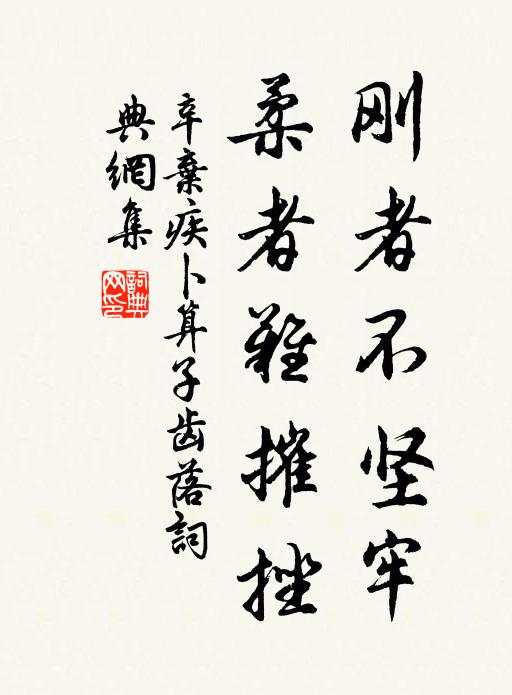 刚者不坚牢
柔者难摧挫
辛棄疾卜算子齿落詞
典網集
詞典网印